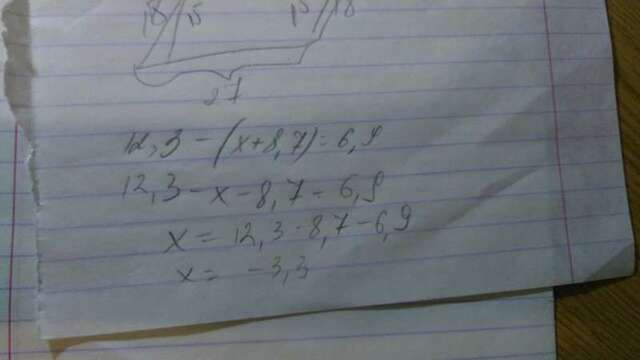 18 15 15 18
27
12,3 - (x+8,7) = 6,9
12,3 - x - 8,7 = 6,9
x = 12,3 - 8,7 - 6,9
x = -3,3